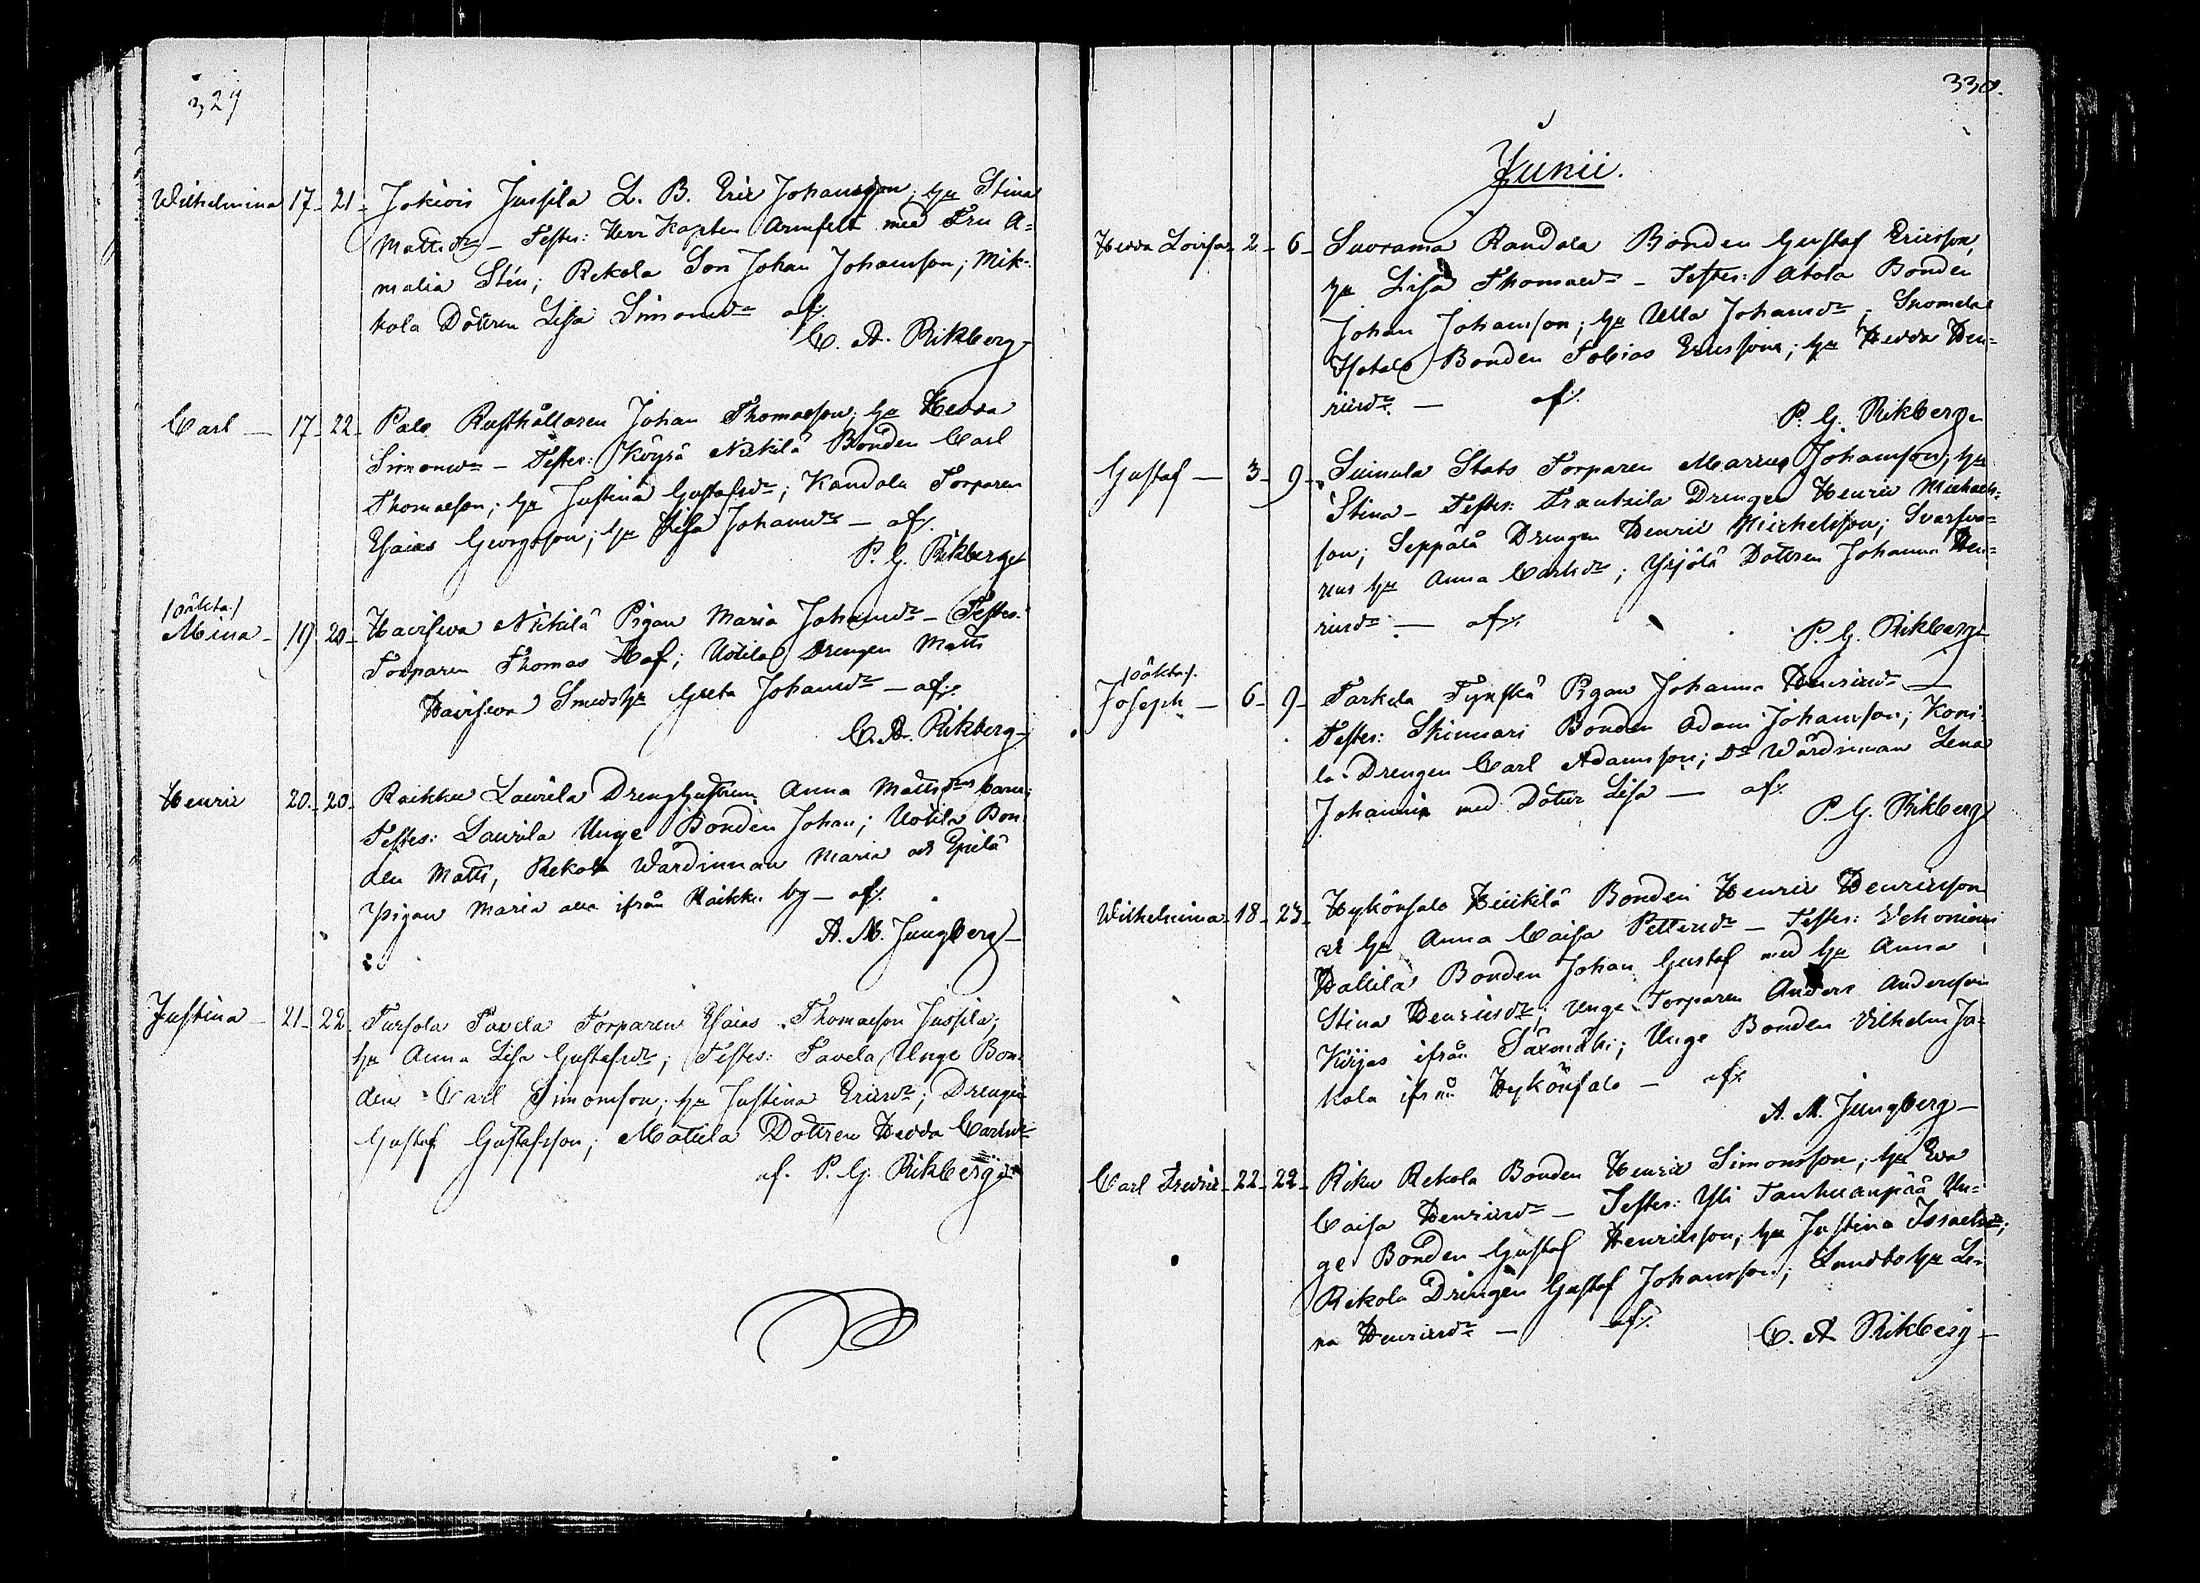 329
Wilhelmina 17 - 21 - Jokiois Jussila L. B. Eric Johansson; hu Stina
Mattsdr - Testes: Herr Kapten Armfelt med Fru A=
malia Stén; Rekola Son Johan Johansson; Mik=
kola Dottren Lisa Simonsdr af
C. A. Rikberg
Carl - 17 - 22 - Palo Rusthållaren Johan Thomasson; hu Hedda
Simonsdr - Testes: Köysä Nikkilä Bonden Carl
Thomasson; hu Justina Gustafsdr; Kandola Torparen
Esaias Georgsson; hu Lisa Johansdr - af
P. G. Rikberg
/oäkta/
Mina - 19 - 20 - Haviseva Nikkilä Pigan Maria Johansdr - Testes:
Torparen Thomas Haf; Uotila Drengen Matts
Haviseva Smeds hu Greta Johansdr - af
C. A. Rikberg
Henric 20 - 20 - Raikku Laurila Dreng hustrun Anna Mattsdrs barn;
Testes: Laurila Unge Bonden Johan; Uotila Bon
den Matts, Rekola Wärdinnan Maria och Epilä
pigan Maria alla ifrån Raikku by - af
A. M. Jungberg
Justina - 21 - 22 - Tursola Pavela Torparen Esaias Thomasson Jussila;
hu Anna Lisa Gustafsdr; Testes: Pavela Unge Bon=
den Carl Simonsson; hu Justina Ericsdr; Drengen
Gustaf Gustafsson; Matula Dottren Hedda Carlsdr
af. P. G. Rikberg
330.
Junii.
Hedda Lovisa - 2 - 6 - Suorama Randala Bonden Gustaf Ericsson,
hu Lisa Thomasdr - Testes: Ahola Bonden
Johan Johansson; hu Ulla Johansdr; Suomela
Isotalo Bonden Tobias Ericsson; hu Hedda Hen=
ricsdr - af
P. G. Rikberg
Gustaf - 3 - 9 - Suinula Stats Torparen Marcus Johansson; hu
Stina - Testes: Frantsila Drengen Henric Michels=
son; Seppälä Drengen Henric Michelsson;
hu Anna Carlsdr; Yrjölä Dottren Johanna Hen=
ricsdr - af
P. G. Rikberg
/oäkta/
Joseph - 6 - 9 - Tarkela Tynskä Pigan Johanna Henricsdr -
Testes: Skinnari Bonden Adam Johansson; Koni
la Drengen Carl Adamsson; Do Wärdinnan Lena
Johanna med Dotter Lisa - af
P. G. Rikberg
Wilhelmina - 18 - 23 - Hykönsalo Heikkilä Bonden Henric Henricsson
och hu Anna Caisa Pettersdr - Testes: Vehoniemi
Hallila Bonden Johan Gustaf med hu Anna
Stina Henricsdr; Unge Torparen Anders Andersson
ifrån; Unge Bonden Vilhelm Ja=
kola ifrån Hykönsalo - af
A. M. Jungberg
Carl Fredric - 22 - 22 - Riku Rekola Bonden Henric Simonsson; hu Eva
Caisa Henricsdr - Testes: Yli Tanhuanpää Un=
ge Bonden Gustaf Henricsson; hu Justina Issacsdr;
Rekola Drengen Gustaf Johansson; Lundbo hu Le=
na Henricsdr - af
C. A. Rikberg